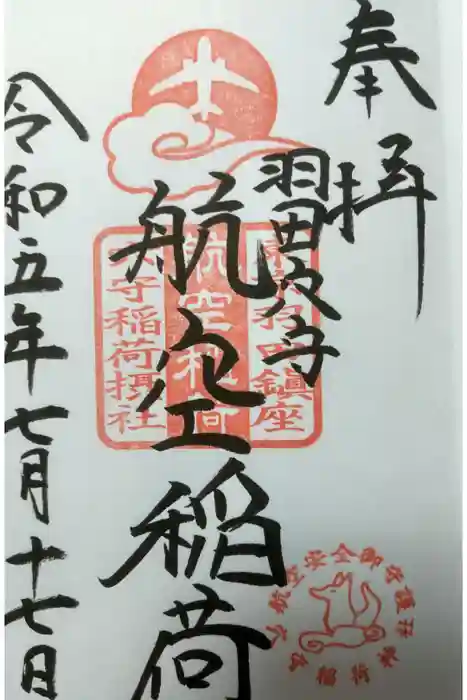 奉拝
羽田穴守
航空稲荷
東京羽田鎮座
航空稲荷
穴守稲荷摂社
令和五年七月十七日
航空安全御守護
穴守稲荷神社